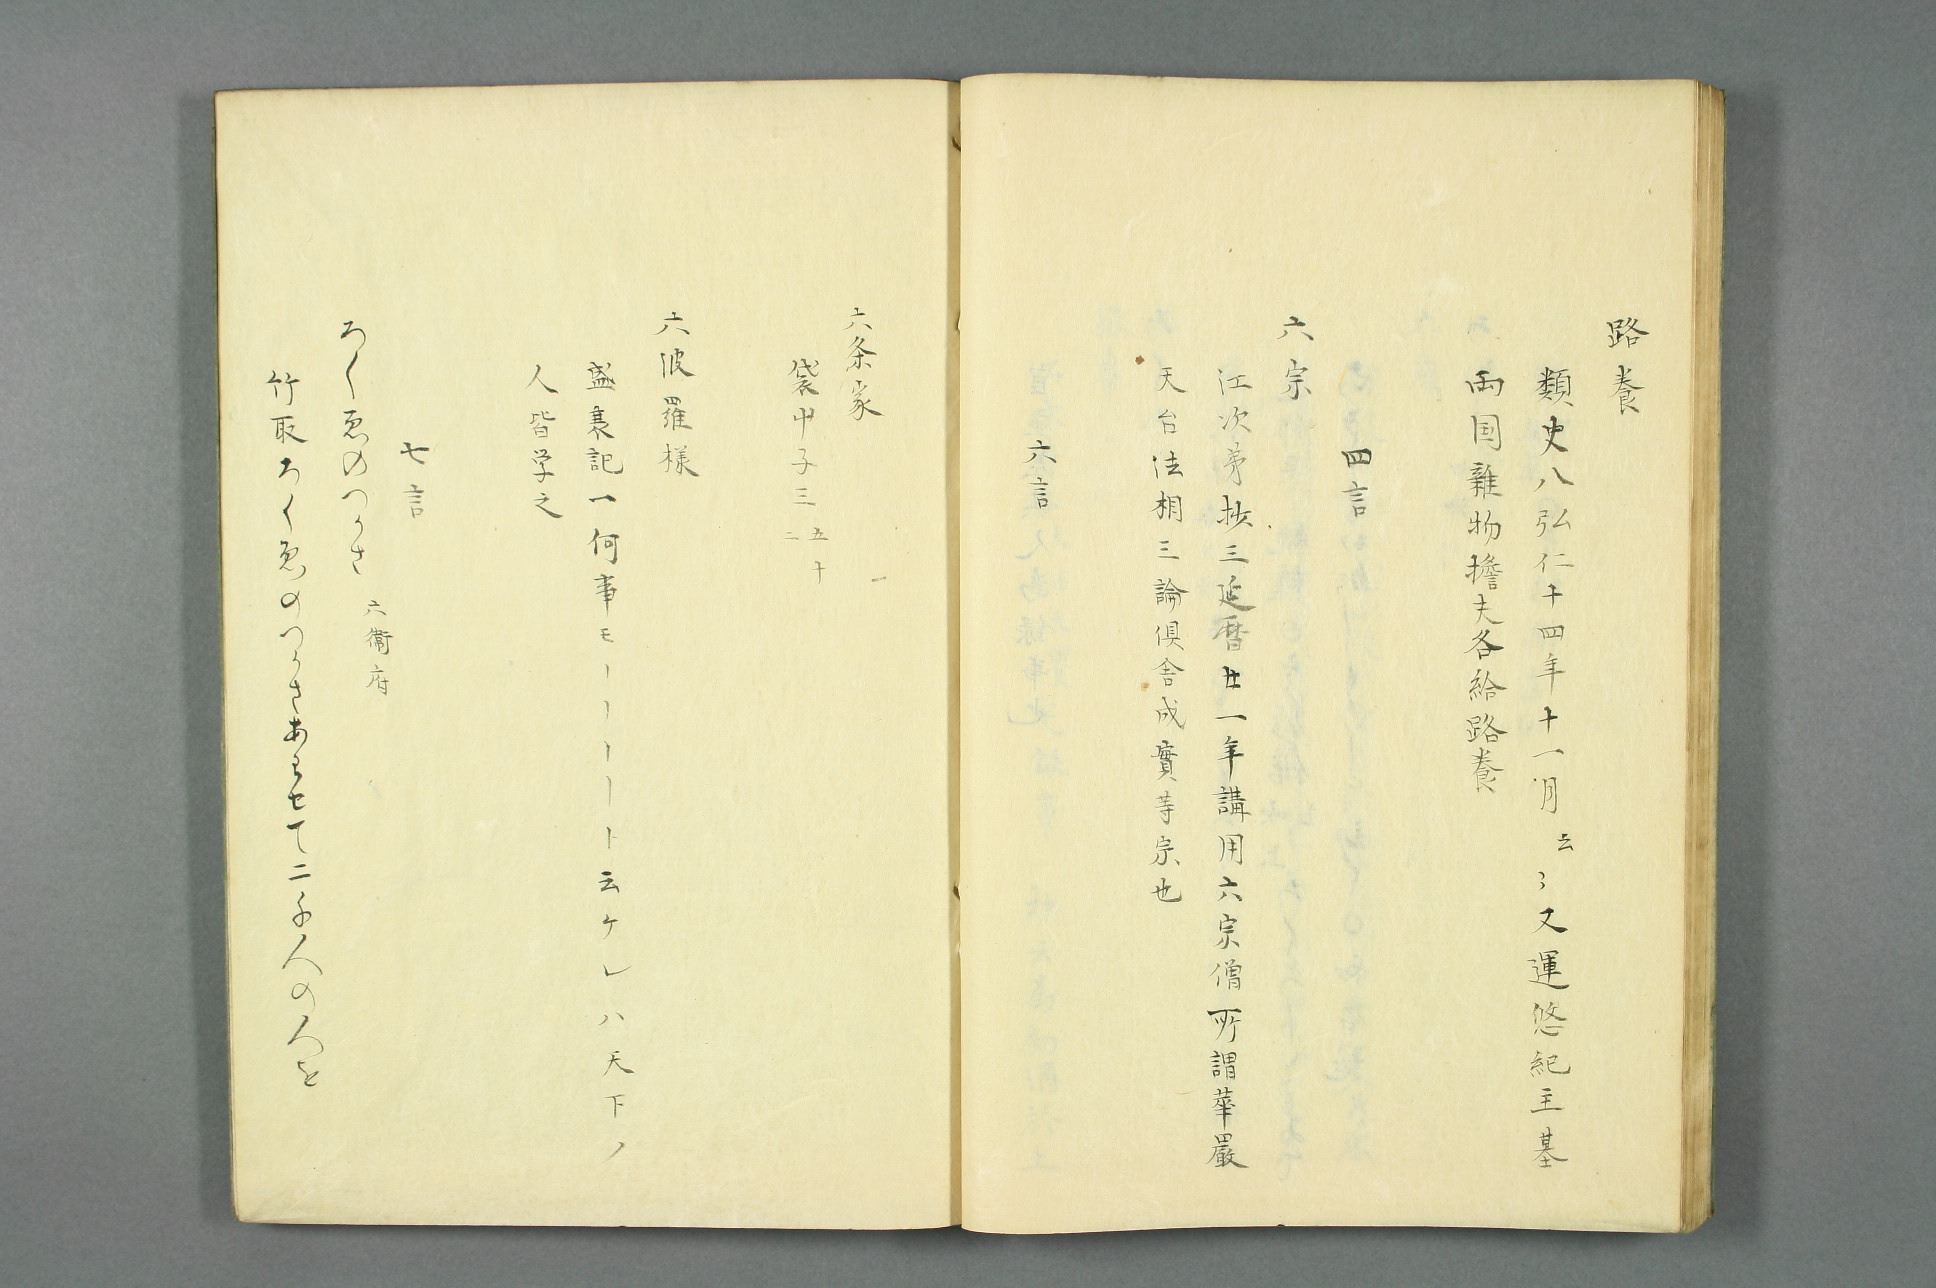 路養
類史八弘仁十四年十一月云々又運悠紀主基
両国雜物擔夫各給路養
四言
六宗
江次第抄三延暦廿一年講用六宗僧所謂華嚴
天台法相三論倶舎成實等宗也
六言
六条家
袋中子三
五十一
二
六波羅様
盛衰記一何事モーーーーート云ケレハ天下ノ
人皆学之
七言
六衛府
ろくゑのつかさ
竹取ろくゑのつかさあはせて二千人の人を